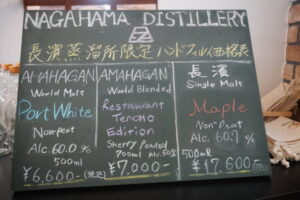 NAGAHAMA DISTILLERY
長濱蒸溜所限定ハンドフィル価格表
AMAHAGAN
World Malt
Port White
Non-peat
Alc.60.0%
500ml
¥6,600-(税込)
AMAHAGAN
World Blended
Restaurant
Tencho
Edition
Sherry Peated
700ml Alc.50%
¥7,000-
長濱
Single Malt
Maple
Non-Peat
Alc 60.7%
500ml
¥17,600-